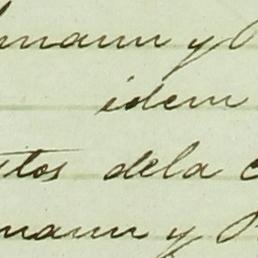 mann y
idem
itos dela c
mann y